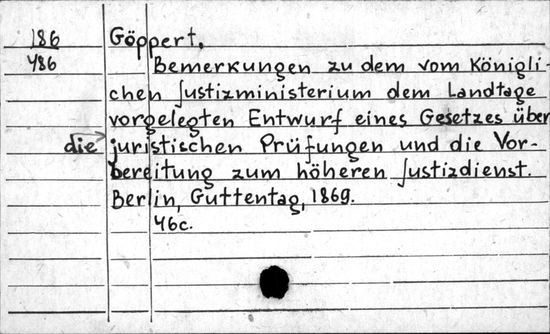 186 Göppert,
486 Bemerkungen zu dem vom Königli-
chen Justizministerium dem Landtage
vorgelegten Entwurf eines Gesetzes über
die juristischen Prüfungen und die Vor-
bereitung zum höheren Justizdienst.
Berlin, Guttentag, 1869.
46c.